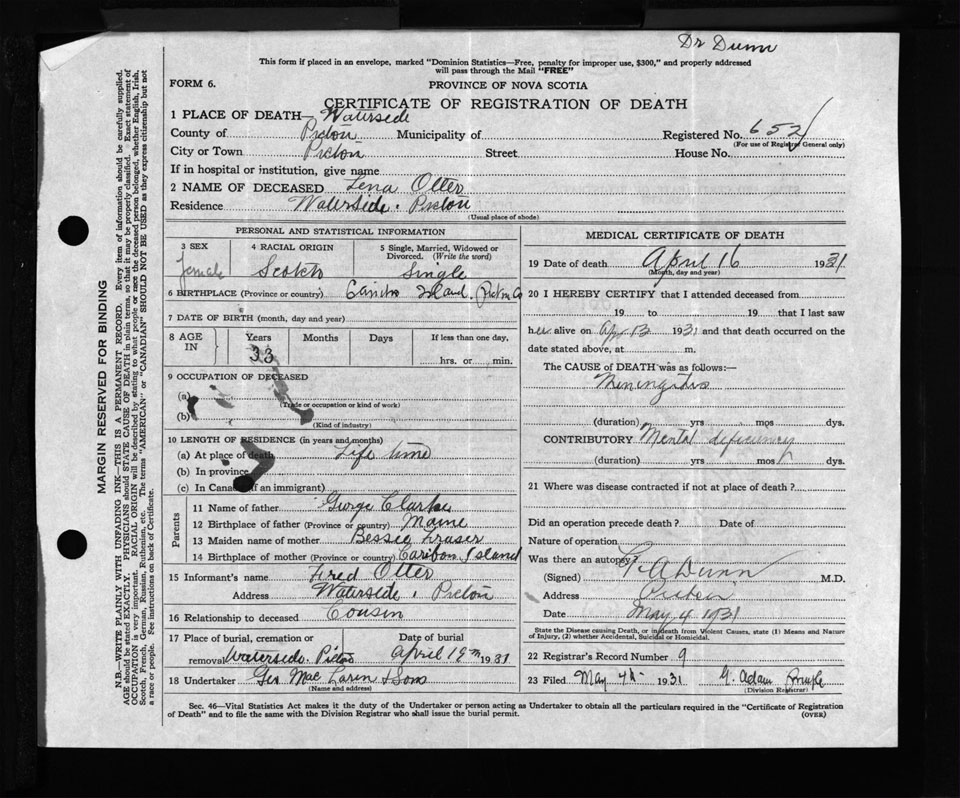 Dr Dunn
This form if placed in an envelope, marked "Dominion Statistics—Free, penalty for improper use, $300," and properly addressed
will pass through the Mail "FREE"
FORM 6.
PROVINCE OF NOVA SCOTIA
CERTIFICATE OF REGISTRATION OF DEATH
1 PLACE OF DEATH— Waterside
County of Pictou Municipality of Registered No. 652
(For use of Registrar General only)
City or Town Pictou Street House No.
If in hospital or institution, give name
2 NAME OF DECEASED Lena Otter
Residence Waterside. Pictou
(Usual place of abode)
PERSONAL AND STATISTICAL INFORMATION
3 SEX 4 RACIAL ORIGIN 5 Single, Married, Widowed or
Divorced. (Write the word)
female Scotch Single
6 BIRTHPLACE (Province or country) Caribou Island. Pictou Co
7 DATE OF BIRTH (month, day and year)
8 AGE IN Years Months Days If less than one day,
33 hrs. or min.
9 OCCUPATION OF DECEASED
(a) (Trade or occupation or kind of work)
(b) (Kind of industry)
10 LENGTH OF RESIDENCE (in years and months)
(a) At place of death Life time
(b) In province
(c) In Canada (if an immigrant)
Parents
11 Name of father George Clarke
12 Birthplace of father (Province or country) Maine
13 Maiden name of mother Bessie Fraser
14 Birthplace of mother (Province or country) Caribou Island
15 Informant's name Fred Otter
Address Waterside. Pictou
16 Relationship to deceased Cousin
17 Place of burial, cremation or Date of burial
removal Waterside. Pictou April 19th 1931
18 Undertaker Geo Mac Laren & Sons
(Name and address)
MEDICAL CERTIFICATE OF DEATH
19 Date of death April 16 1931
(Month, day and year)
20 I HEREBY CERTIFY that I attended deceased from
19 to 19 that I last saw
her alive on Apr 13 1931 and that death occurred on
date stated above, at m.
The CAUSE OF DEATH was as follows:—
Meningitis
(duration) yrs mos dys.
CONTRIBUTORY Mental deficiency
(duration) yrs mos dys.
21 Where was disease contracted if not at place of death?
Did an operation precede death? Date of
Nature of operation
Was there an autopsy?
(Signed) A Dunn M.D.
Address Pictou
Date May 4 1931
State the Disease causing Death, or in death from Violent Causes, state (1) Means and Nature
of Injury, (2) whether Accidental, Suicidal or Homicidal.
22 Registrar's Record Number 9
23 Filed May 4th 1931 G. Adam
(Division Registrar)
Sec. 46—Vital Statistics Act makes it the duty of the Undertaker or person acting as Undertaker to obtain all the particulars required in the "Certificate of Registration
of Death" and to file the same with the Division Registrar who shall issue the burial permit.
(OVER)
MARGIN RESERVED FOR BINDING
N.B.—WRITE PLAINLY WITH UNFADING INK—THIS IS A PERMANENT RECORD. Every item of information should be carefully supplied.
AGE should be stated EXACTLY. PHYSICIANS should STATE CAUSE OF DEATH in plain terms, so that it may be properly classified. Exact statement of
OCCUPATION is very important. RACIAL ORIGIN will be described by stating to what people or race the deceased person belonged, whether English, Irish,
Scotch, French, German, Russian, Ruthenian, etc. The terms "AMERICAN" or "CANADIAN" SHOULD NOT BE USED as they express citizenship but not
a race or people. See instructions on back of Certificate.